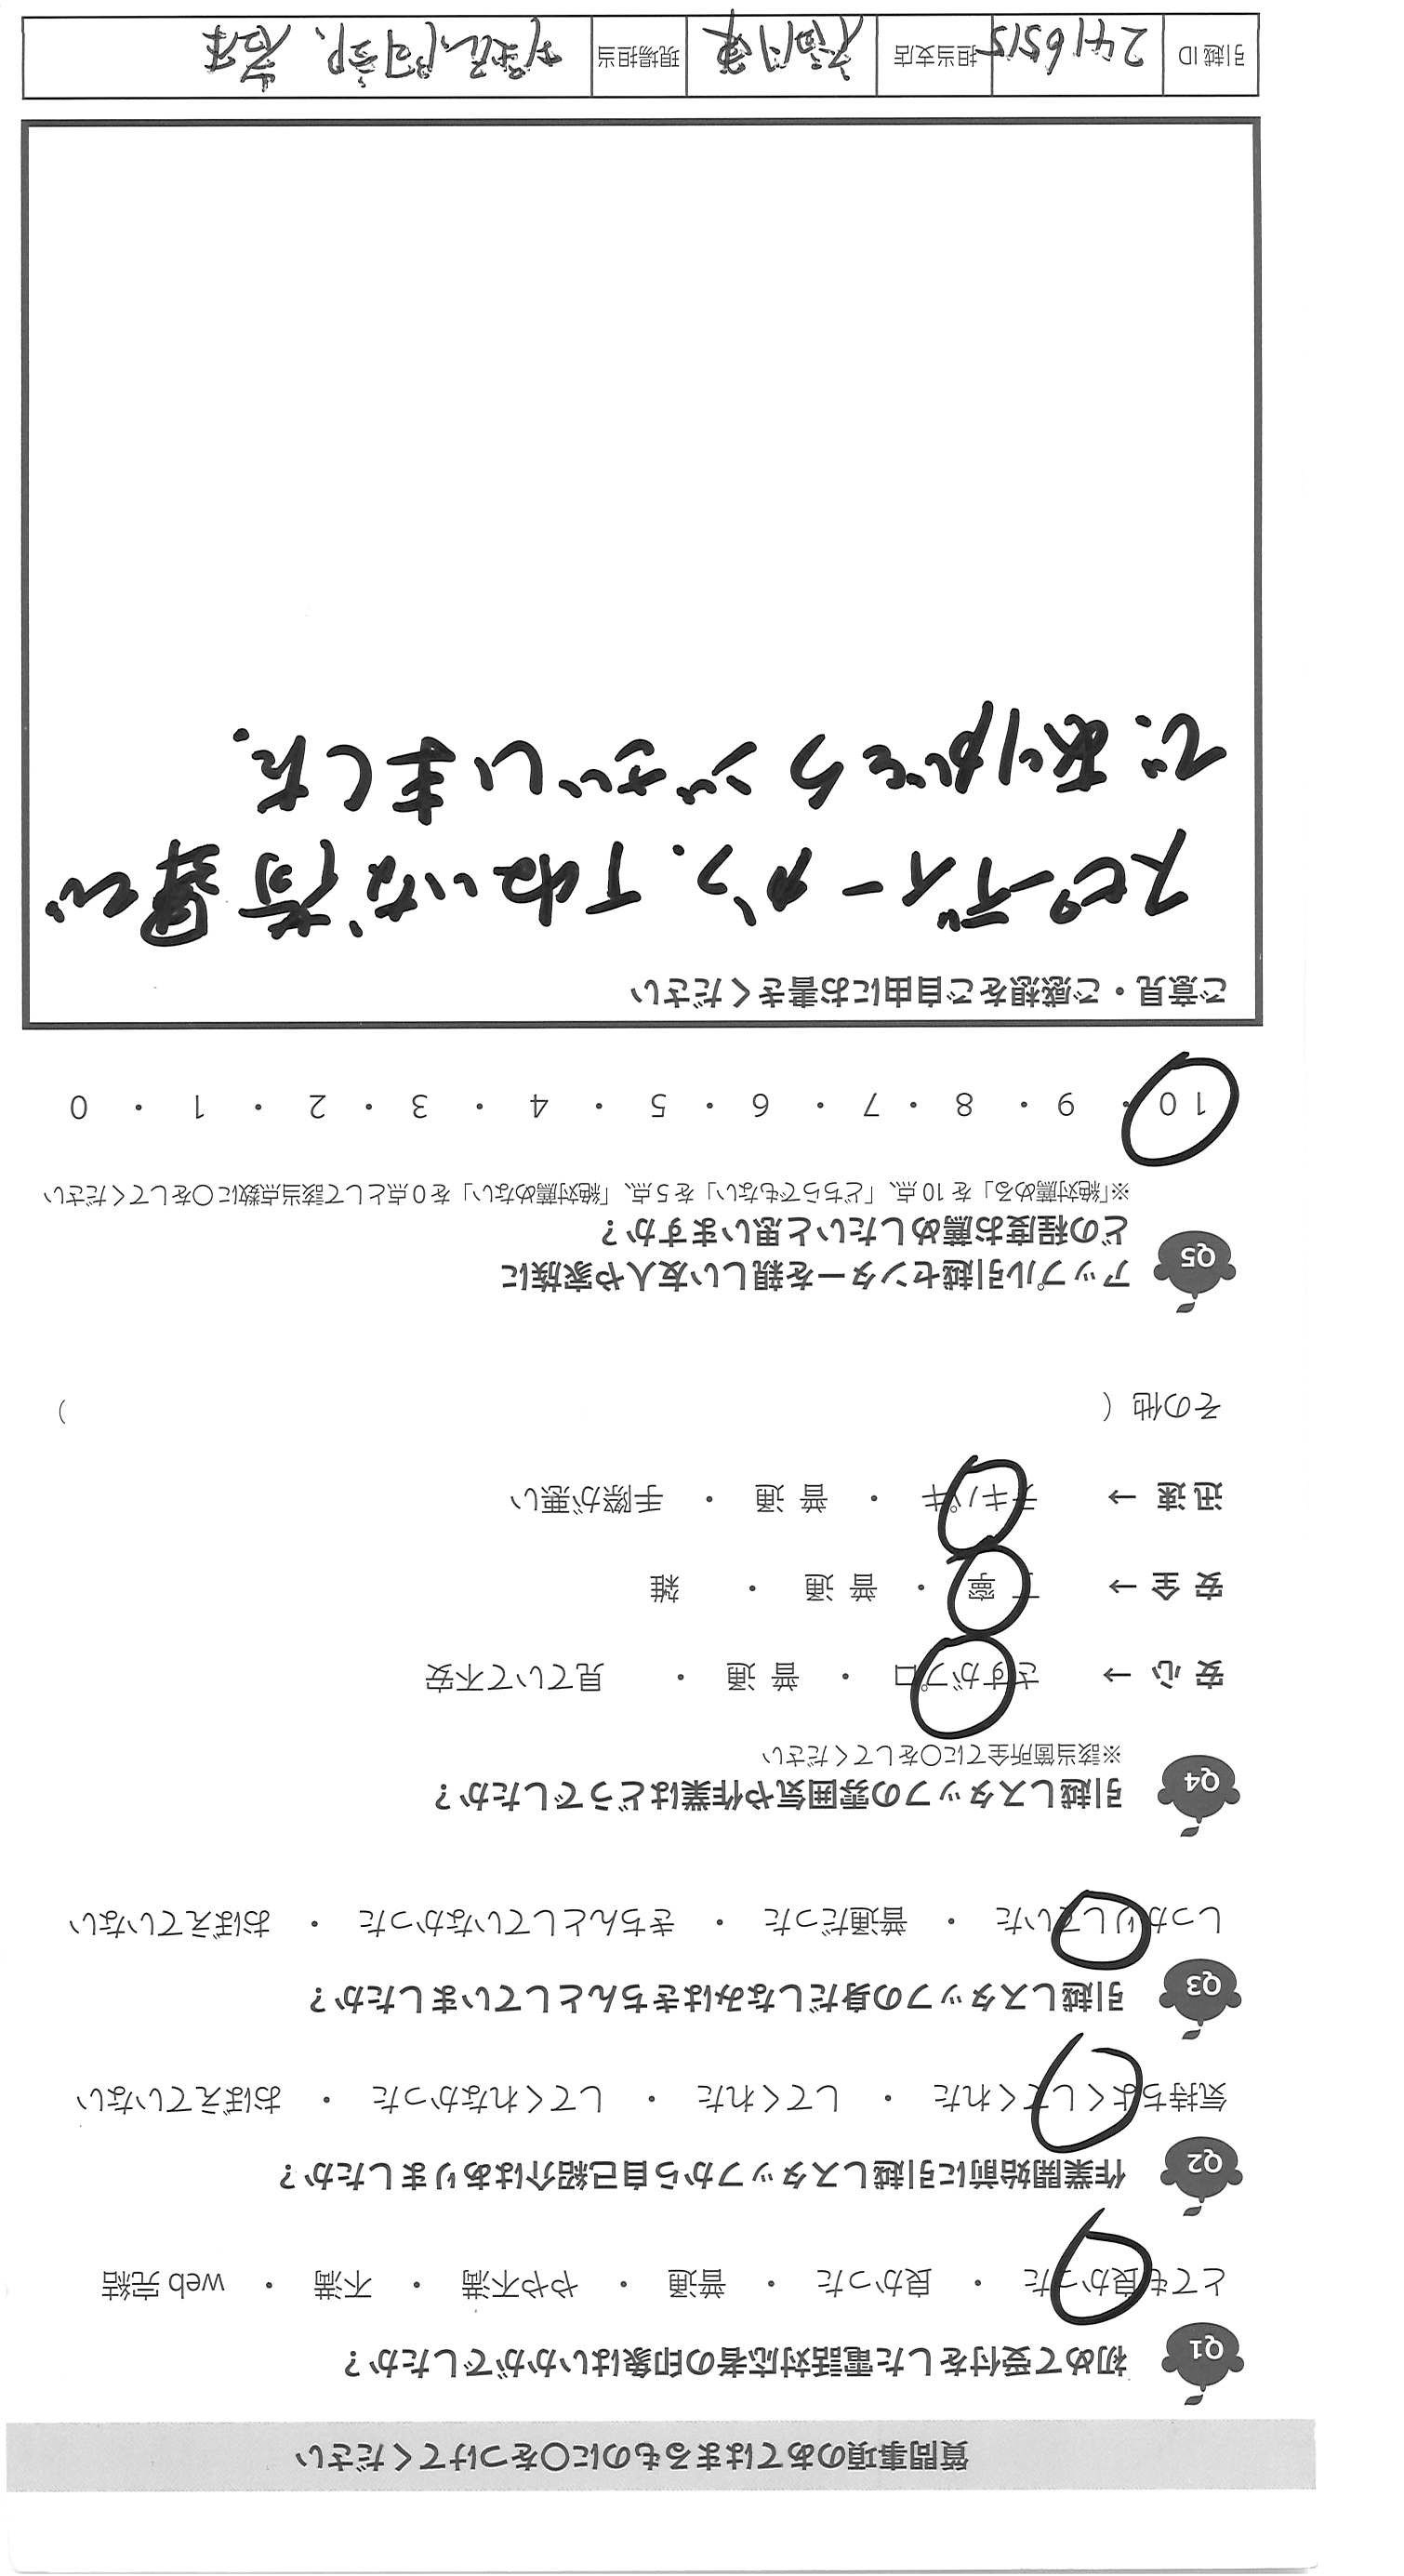 質問事項のあてはまるものに〇をつけてください
Q1 初めて受付をした電話対応者の印象はいかがでしたか？
とても良かった ・ 良かった ・ 普通 ・ やや不満 ・ 不満 ・ web 完結
Q2 作業開始前に引越しスタッフから自己紹介はありましたか？
気持ちよくしてくれた ・ してくれた ・ してくれなかった ・ おぼえていない
Q3 引越しスタッフの身だしなみはきちんとしていましたか？
しっかりしていた ・ 普通だった ・ きちんとしていなかった ・ おぼえていない
Q4 引越しスタッフの雰囲気や作業はどうでしたか？
※該当箇所全てに〇をしてください
安心 → さすがプロ ・ 普通 ・ 見ていて不安
安全 → 丁寧 ・ 普通 ・ 雑
迅速 → テキパキ ・ 普通 ・ 手際が悪い
その他（ ）
Q5 アップル引越センターを親しい友人や家族に
どの程度お薦めしたいと思いますか？
※「絶対薦める」を 10 点、「どちらでもない」を 5 点、「絶対薦めない」を 0 点として該当点数に〇をしてください
10 ・ 9 ・ 8 ・ 7 ・ 6 ・ 5 ・ 4 ・ 3 ・ 2 ・ 1 ・ 0
ご意見・ご感想をご自由にお書きください
スピーディーかつ、丁ねいな荷運び
で、ありがとうございました.
引越 ID 2416515 担当支店 現場担当 阿部、